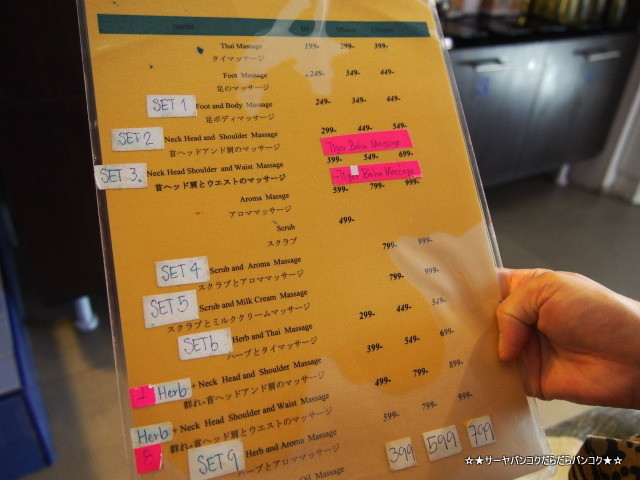 Thai Massage 199- 299- 399-
タイマッサージ
Foot Massage 249- 349- 449-
足のマッサージ
SET 1 Foot and Body Massage 249- 349- 449-
足ボディマッサージ
SET 2 Neck Head and Shoulder Massage 299- 449- 549-
首ヘッドアンド肩のマッサージ Tiger Balm Massage
SET 3. Neck Head Shoulder and Waist Massage 399- 549- 699-
首ヘッド肩とウエストのマッサージ Tiger Balm Massage
Aroma Massage 599- 799- 999-
アロママッサージ
Scrub 499-
スクラブ
SET 4 Scrub and Aroma Massage 799- 999-
スクラブとアロママッサージ
SET 5 Scrub and Milk Cream Massage 799- 999-
スクラブとミルククリームマッサージ
SET 6 Herb and Thai Massage 299- 449- 549-
ハーブとタイマッサージ
Herb + Neck Head and Shoulder Massage 399- 549- 699-
群れ+首ヘッドアンド肩のマッサージ
Herb + Neck Head Shoulder and Waist Massage 499- 799- 899-
8 群れ+首ヘッド肩とウエストのマッサージ
SET 9 Herb and Aroma Massage 599- 799- 999-
ハーブとアロママッサージ
399 599 799
Oil Massage
☆★サーヤバンコクだらだらバンコク★☆